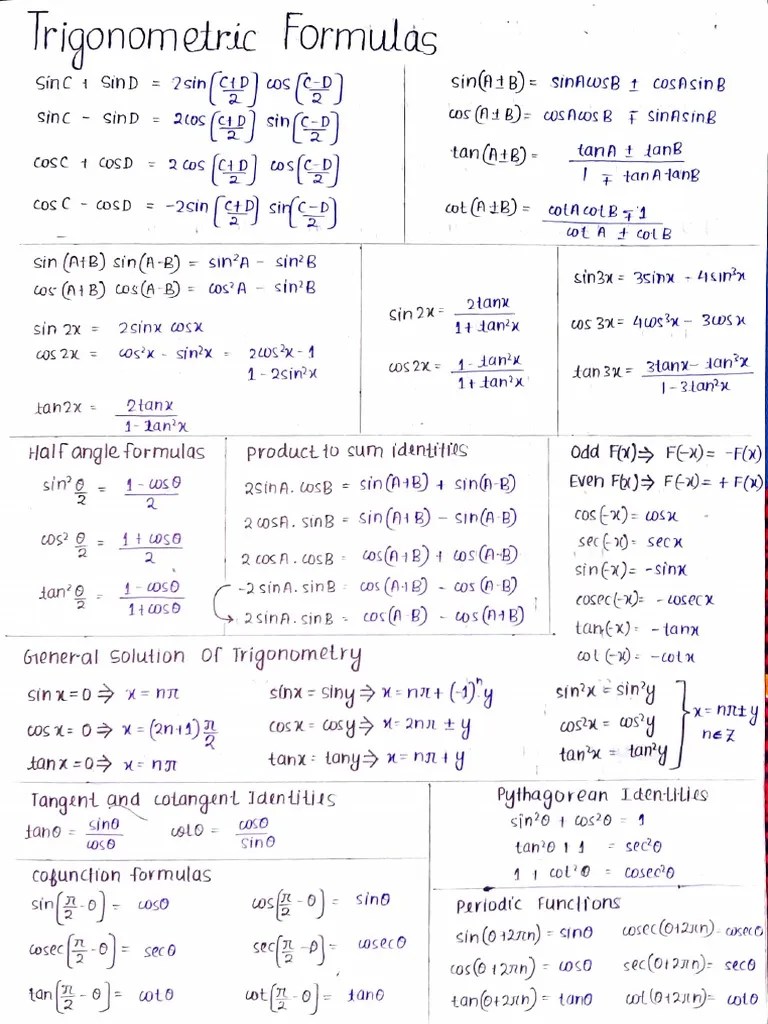 Trigonometric Formulas
sinC + sinD = 2sin[(C+D)/2] cos[(C-D)/2]
sinC - sinD = 2cos[(C+D)/2] sin[(C-D)/2]
cosC + cosD = 2cos[(C+D)/2] cos[(C-D)/2]
cosC - cosD = -2sin[(C+D)/2] sin[(C-D)/2]
sin(A±B) = sinAcosB ± cosAsinB
cos(A±B) = cosAcosB ∓ sinAsinB
tan(A±B) = (tanA ± tanB)/(1 ∓ tanAtanB)
cot(A±B) = (cotAcotB ∓ 1)/(cotA ± cotB)
sin(A+B) sin(A-B) = sin²A - sin²B
cos(A+B) cos(A-B) = cos²A - sin²B
sin 2x = 2sinx cosx
cos2x = cos²x - sin²x = 2cos²x - 1
1 - 2sin²x
tan2x = 2tanx/(1 - tan²x)
sin2x = 2tanx/(1 + tan²x)
cos2x = (1 - tan²x)/(1 + tan²x)
sin3x = 3sinx - 4sin³x
cos3x = 4cos³x - 3cosx
tan3x = (3tanx - tan³x)/(1 - 3tan²x)
Half angle formulas
sin² θ/2 = (1 - cosθ)/2
cos² θ/2 = (1 + cosθ)/2
tan² θ/2 = (1 - cosθ)/(1 + cosθ)
product to sum identities
2sinA.cosB = sin(A+B) + sin(A-B)
2cosA.sinB = sin(A+B) - sin(A-B)
2cosA.cosB = cos(A+B) + cos(A-B)
-2sinA.sinB = cos(A+B) - cos(A-B)
2sinA.sinB = cos(A-B) - cos(A+B)
Odd F(x) ⇒ F(-x) = -F(x)
Even F(x) ⇒ F(-x) = +F(x)
cos(-x) = cosx
sec(-x) = secx
sin(-x) = -sinx
cosec(-x) = -cosecx
tan(-x) = -tanx
cot(-x) = -cotx
General Solution Of Trigonometry
sinx=0 ⇒ x = nπ
cosx=0 ⇒ x = (2n+1)π/2
tanx=0 ⇒ x = nπ
sinx = siny ⇒ x = nπ + (-1)ⁿy
cosx = cosy ⇒ x = 2nπ ± y
tanx = tany ⇒ x = nπ + y
sin²x = sin²y
cos²x = cos²y
tan²x = tan²y
x = nπ ± y
n∈Z
Tangent and cotangent Identities
tanθ = sinθ/cosθ cotθ = cosθ/sinθ
Pythagorean Identities
sin²θ + cos²θ = 1
tan²θ + 1 = sec²θ
1 + cot²θ = cosec²θ
cofunction formulas
sin[π/2 - θ] = cosθ cos[π/2 - θ] = sinθ
cosec[π/2 - θ] = secθ sec[π/2 - θ] = cosecθ
tan[π/2 - θ] = cotθ cot[π/2 - θ] = tanθ
Periodic Functions
sin(θ+2πn) = sinθ cosec(θ+2πn) = cosecθ
cos(θ+2πn) = cosθ sec(θ+2πn) = secθ
tan(θ+2πn) = tanθ cot(θ+2πn) = cotθ